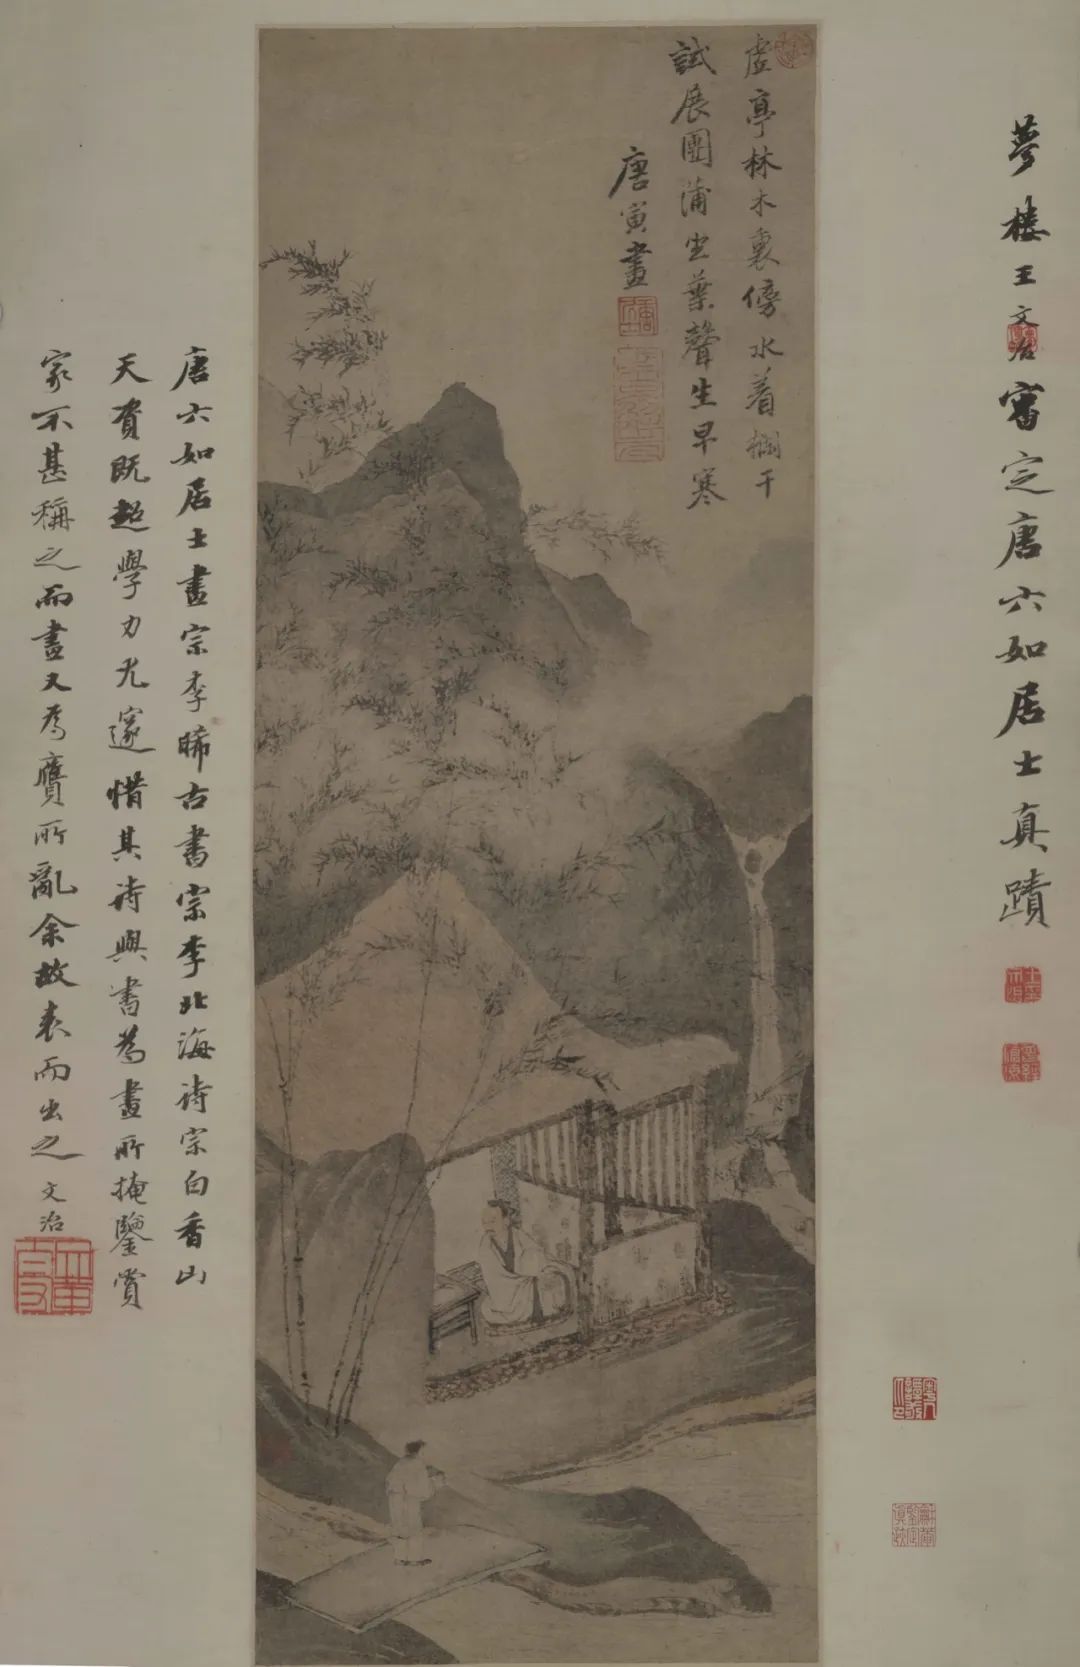 夢樓王文治審定唐六如居士真蹟
虛亭林木裏傍水着欄干
試展團蒲坐葉聲生早寒
唐寅畫
唐六如居士畫宗李晞古書宗李北海詩宗白香山
天資既超學力尤邃惜其詩與書為畫所掩鑒賞
家不甚稱之而畫又為贋所亂余故表而出之 文治